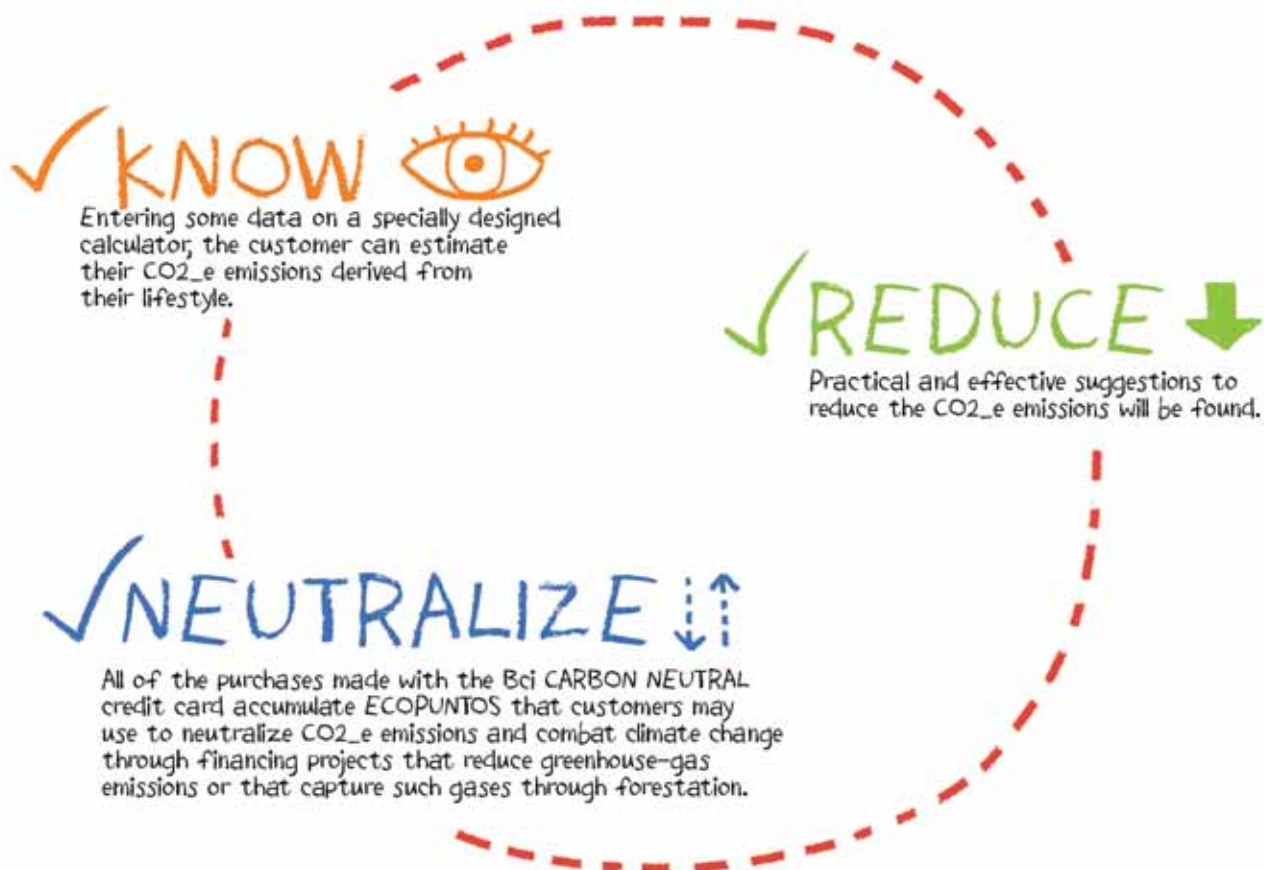 KNOW
Entering some data on a specially designed
calculator, the customer can estimate
their CO2_e emissions derived from
their lifestyle.
REDUCE
Practical and effective suggestions to
reduce the CO2_e emissions will be found.
NEUTRALIZE
All of the purchases made with the Bci CARBON NEUTRAL
credit card accumulate ECOPUNTOS that customers may
use to neutralize CO2_e emissions and combat climate change
through financing projects that reduce greenhouse-gas
emissions or that capture such gases through forestation.